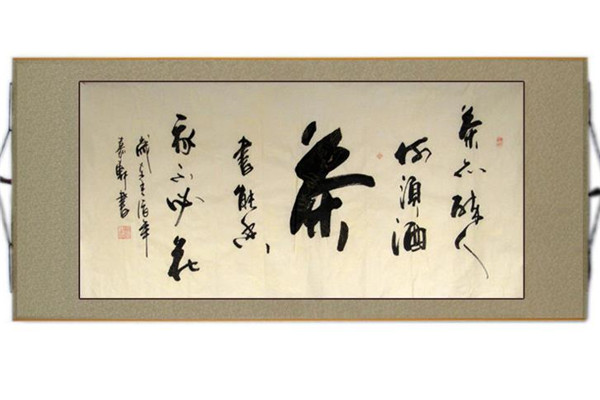 茶亦醉人
何須酒
茶
書能香
我不必花
軒書